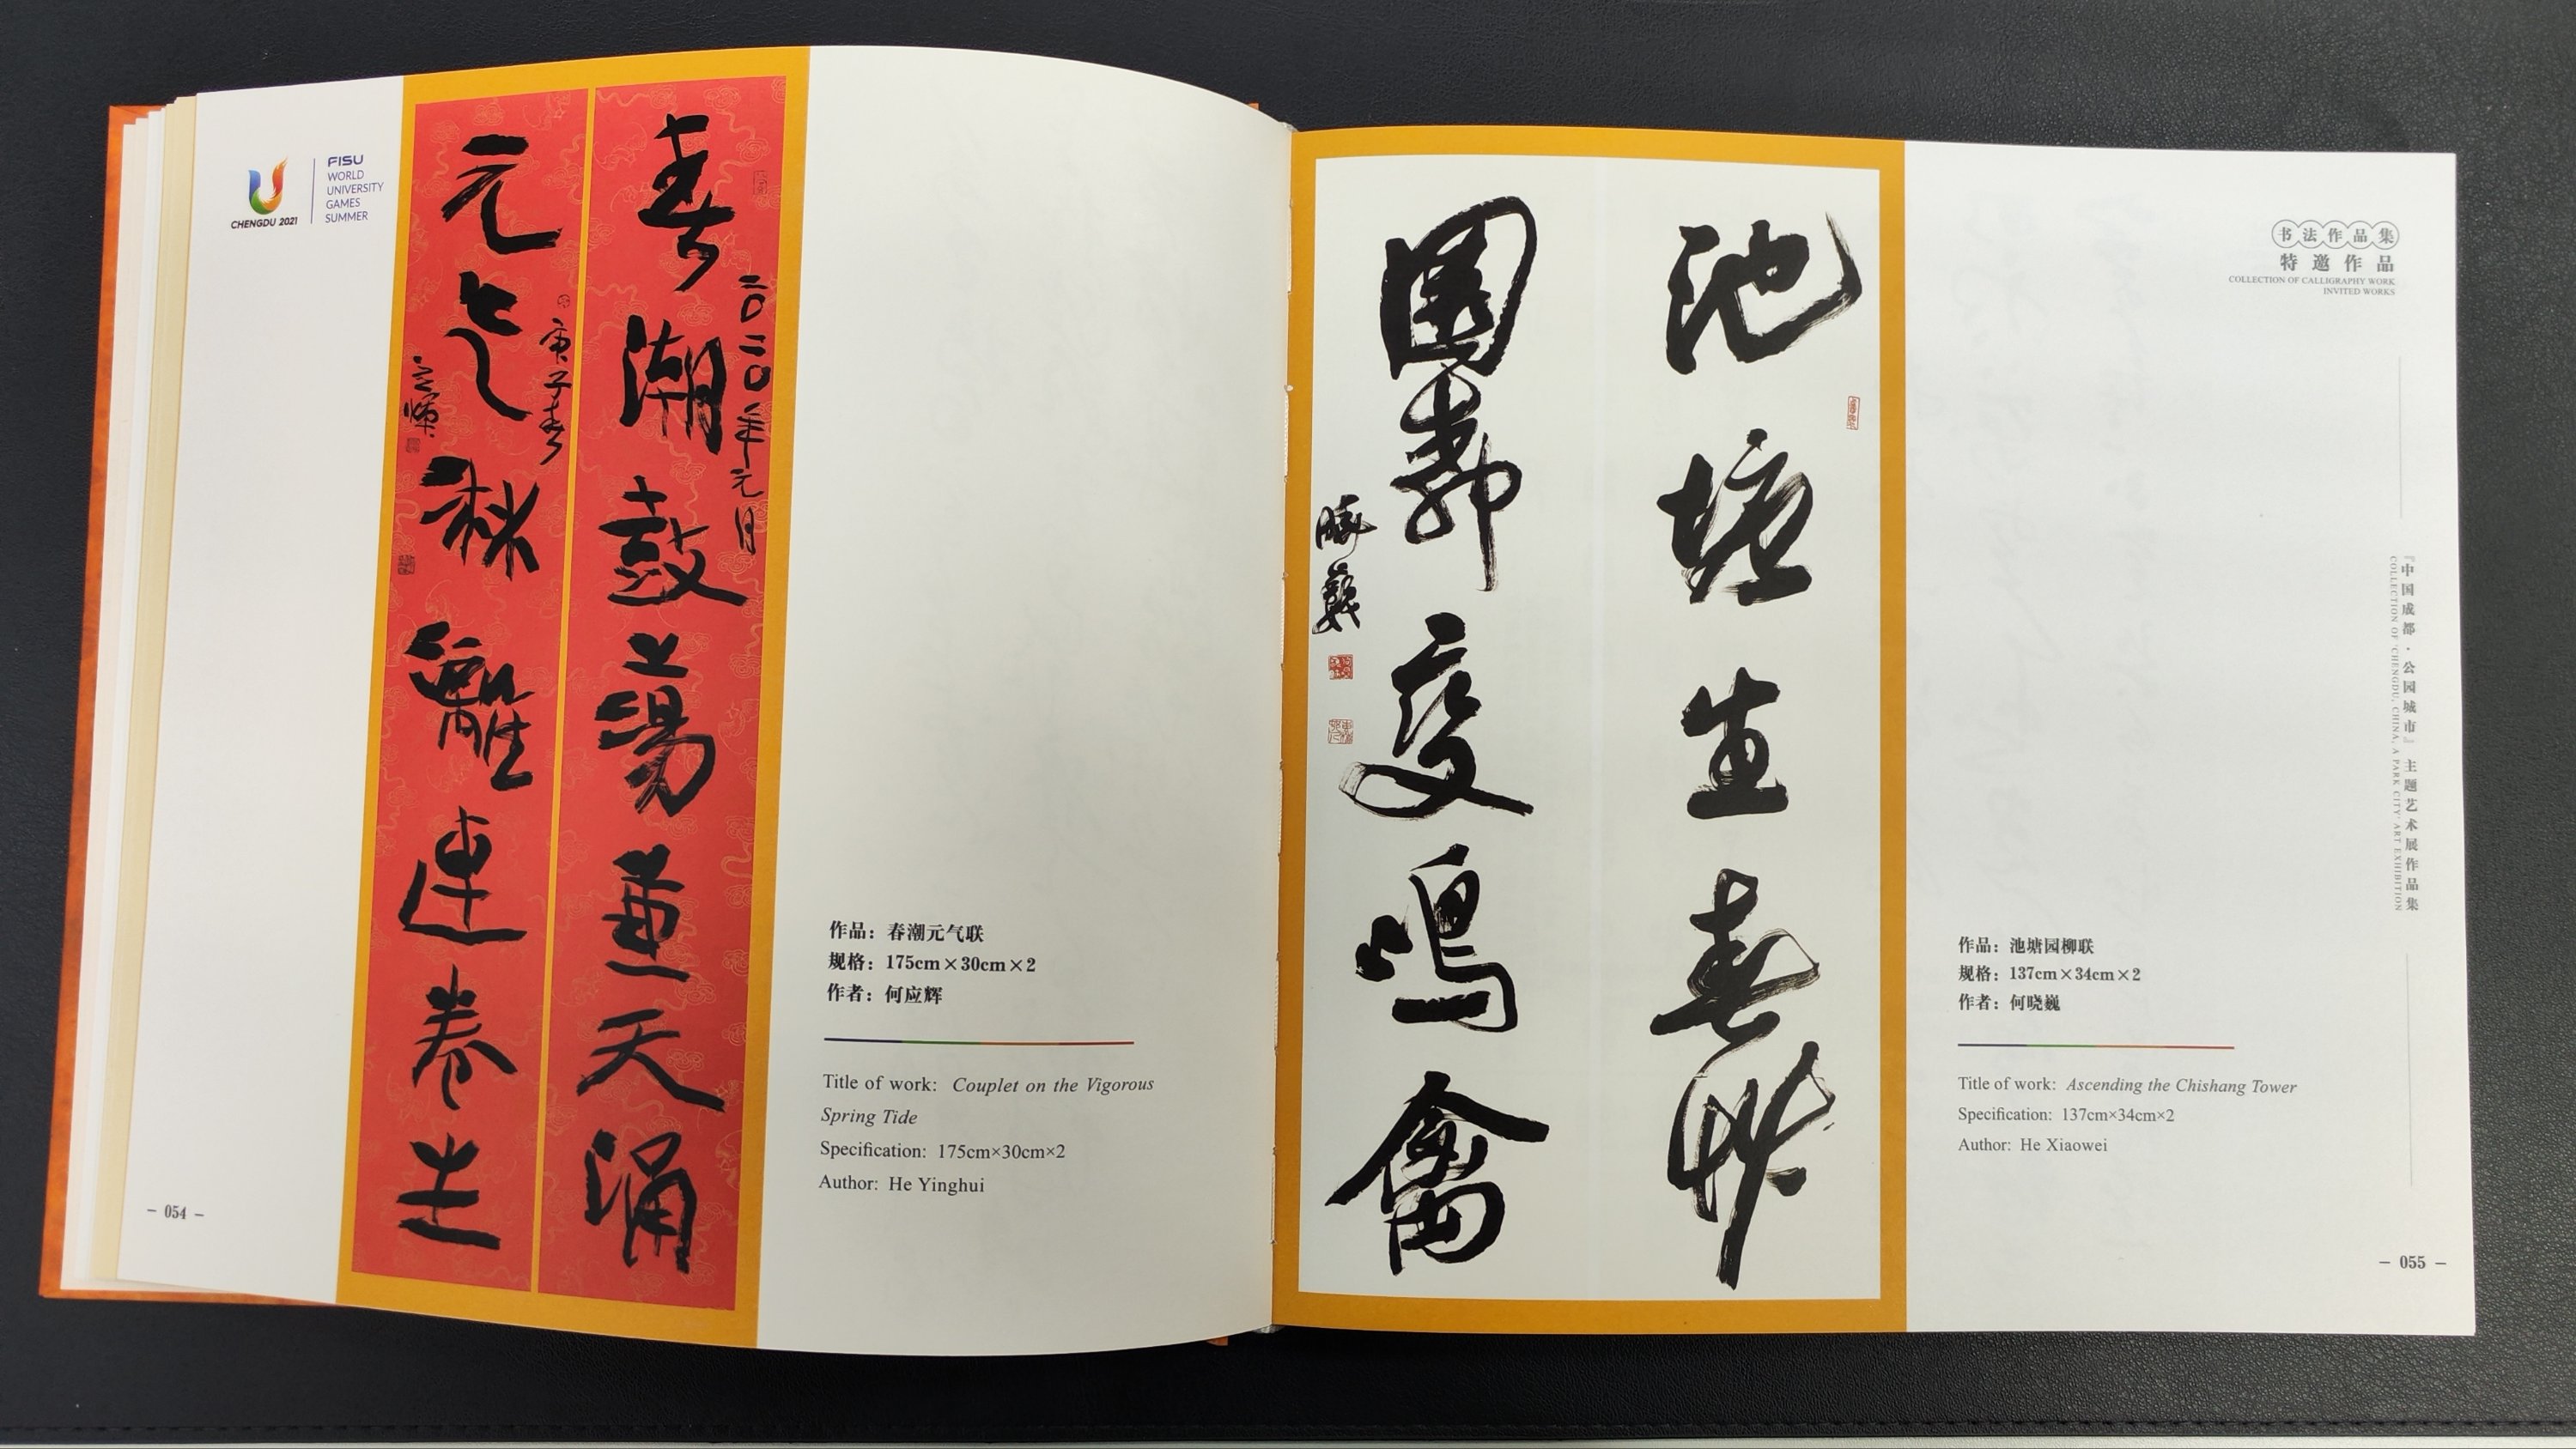 CHENGDU 2021
FISU
WORLD
UNIVERSITY
GAMES
SUMMER
春潮鼓蕩兼天涌
二〇二〇年元月
元气淋灕連卷生
庚子春
作品：春潮元气联
规格：175cm×30cm×2
作者：何应辉
Title of work: Couplet on the Vigorous
Spring Tide
Specification: 175cm×30cm×2
Author: He Yinghui
– 054 –
池塘生春艸
園柳變鳴禽
曉巍
书法作品集
特邀作品
COLLECTION OF CALLIGRAPHY WORK
INVITED WORKS
『中国成都·公园城市』主题艺术展作品集
COLLECTION OF 'CHENGDU, CHINA, A PARK CITY' ART EXHIBITION
作品：池塘园柳联
规格：137cm×34cm×2
作者：何晓巍
Title of work: Ascending the Chishang Tower
Specification: 137cm×34cm×2
Author: He Xiaowei
– 055 –